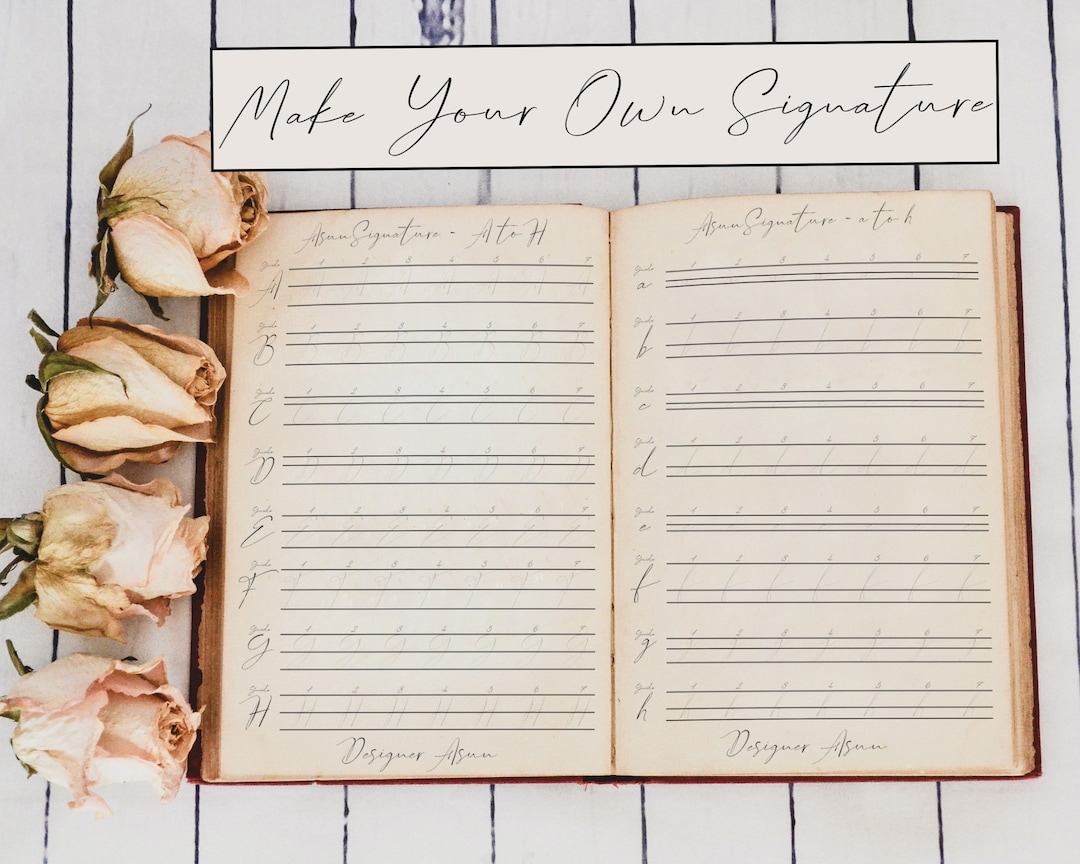 Make Your Own Signature
AsuuSignature - A to H
Guide 1 2 3 4 5 6 7
A A A A A A A A
Guide 1 2 3 4 5 6 7
B B B B B B B B
Guide 1 2 3 4 5 6 7
C C C C C C C C
Guide 1 2 3 4 5 6 7
D D D D D D D D
Guide 1 2 3 4 5 6 7
E E E E E E E E
Guide 1 2 3 4 5 6 7
F F F F F F F F
Guide 1 2 3 4 5 6 7
G G G G G G G G
Guide 1 2 3 4 5 6 7
H H H H H H H H
Designer Asuu
AsuuSignature - a to h
Guide 1 2 3 4 5 6 7
a
Guide 1 2 3 4 5 6 7
b b b b b b b b
Guide 1 2 3 4 5 6 7
c
Guide 1 2 3 4 5 6 7
d d d d d d d d
Guide 1 2 3 4 5 6 7
e
Guide 1 2 3 4 5 6 7
f f f f f f f f
Guide 1 2 3 4 5 6 7
g g g g g g g g
Guide 1 2 3 4 5 6 7
h h h h h h h h
Designer Asuu